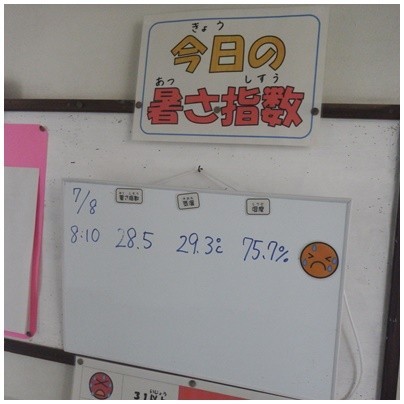 きょう
今日の
あつ しすう
暑さ指数
7/8
暑さ指数 気温 湿度
8:10 28.5 29.3℃ 75.7%
いじょう
31以上